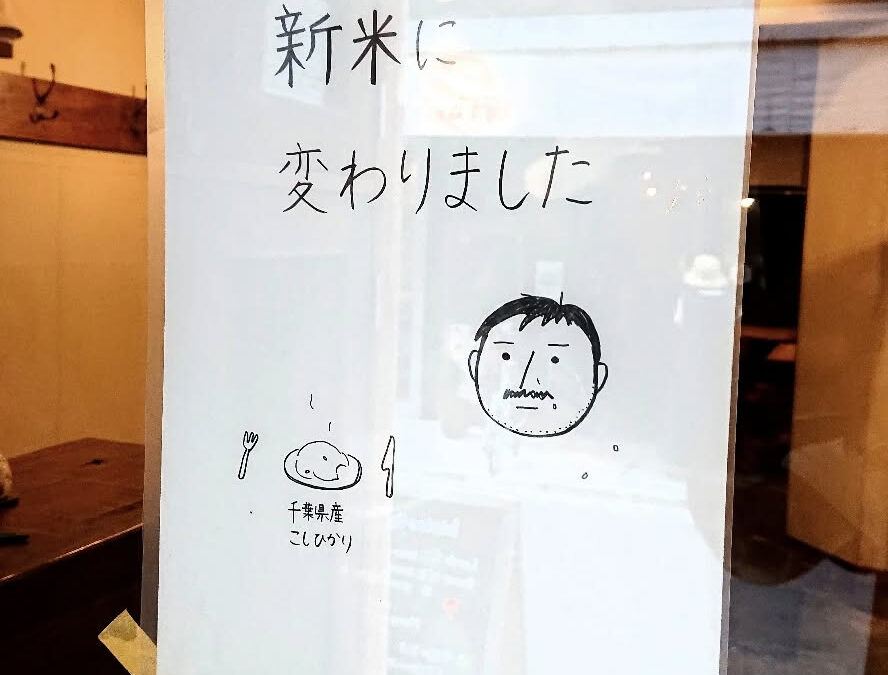 新米に
変わりました
千葉県産
こしひかり